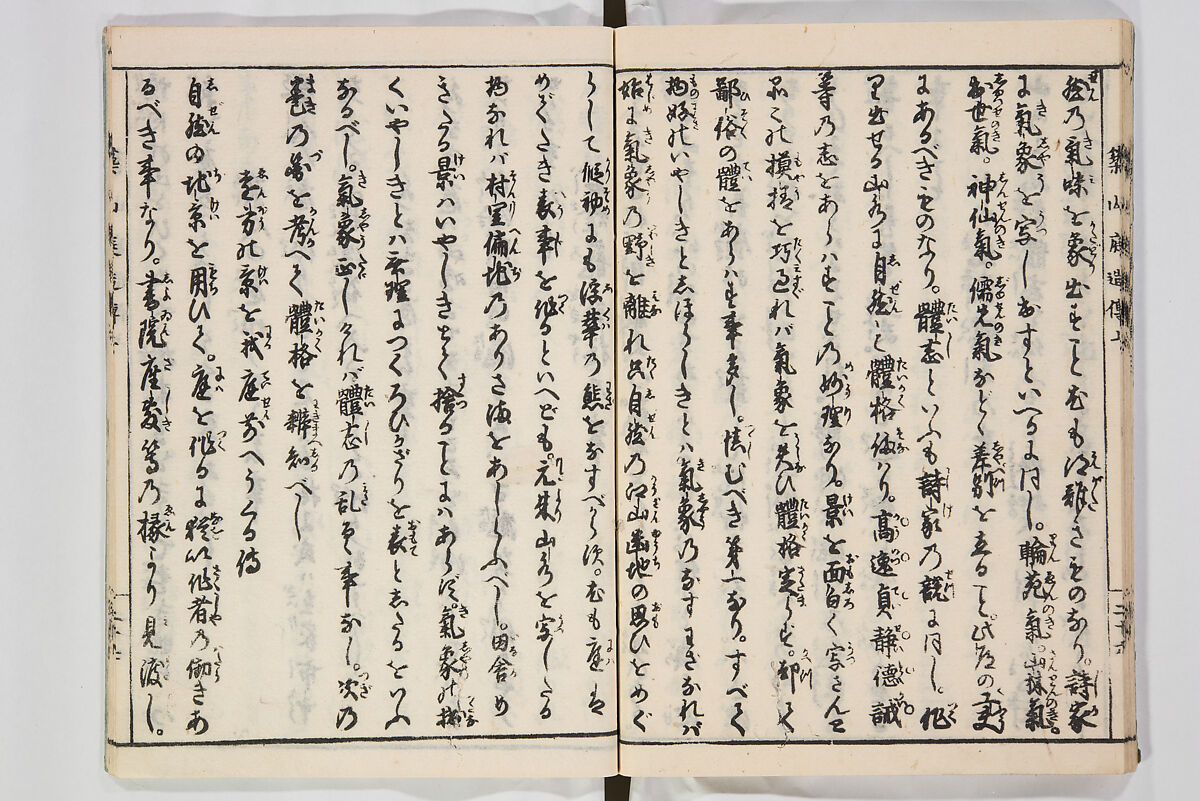 然の氣味を象出すこと尤も得難きものなり。詩家
に氣象を寫し出すといへるに同じ。輪苑氣。山林氣。
出世氣。神仙氣。儒先氣などゝ差別を立ること。此道の要
にあるべきものなり。體志といふも詩家の説に同じ。作
り出せる山水に自然と體格備ハり。高逸貞静德誠
等の志をあらハすことの妙理なり。景を面白く寫さんと
品々の摸様を巧過れバ氣象を失ひ體格定らず。却て
鄙俗の體をあらハす事多し。慎むべき第一なり。すべて
物好のいやしきとしほらしきとハ氣象のなすわざなれバ
始に氣象の野を離れ只自然の江山幽地の思ひをめぐ
らして假初にも浮華の態をなすべからず。尤も庭は
めでたき表事を作るといへども。元来山水を寫したる
物なれバ村里偏地のありさまをあしらふべし。田舎め
きたる景ハいやしきとて捨ることにハあらず。氣象の拙
くいやしきとハ無理につくろひかざりを表としたるをいふ
なるべし。氣象正しけれバ體志の乱るゝ事なし。次の
巻の圖を考へて體格を辨知べし
遠方の景を我庭前へうくる傳
自然の地景を用ひて。庭を作るに猶以作者の働きあ
るべき事なり。書院座敷等の縁より見渡し。
築山庭造傳上